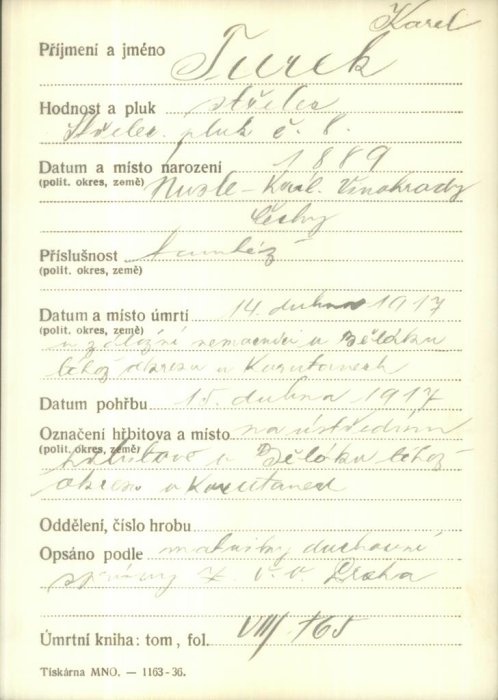 Karel
Příjmení a jméno Turek
Hodnost a pluk střelec
Střelec. pluk č. 8.
Datum a místo narození 1889
(polit. okres, země) Nusle - Král. Vinohrady
Čechy
Příslušnost tamtéž
(polit. okres, země)
Datum a místo úmrtí 14. dubna 1917
(polit. okres, země)
v záložní nemocnici v Běláku
téhož okresu v Korutanech
Datum pohřbu 15. dubna 1917
Označení hřbitova a místo na ústředním
(polit. okres, země)
hřbitově v Běláku téhož
okresu v Korutanech
Oddělení, číslo hrobu
Opsáno podle matriky duchovní
správy Z. V. V. Praha
Úmrtní kniha: tom, fol. VIII/165
Tiskárna MNO. — 1163-36.